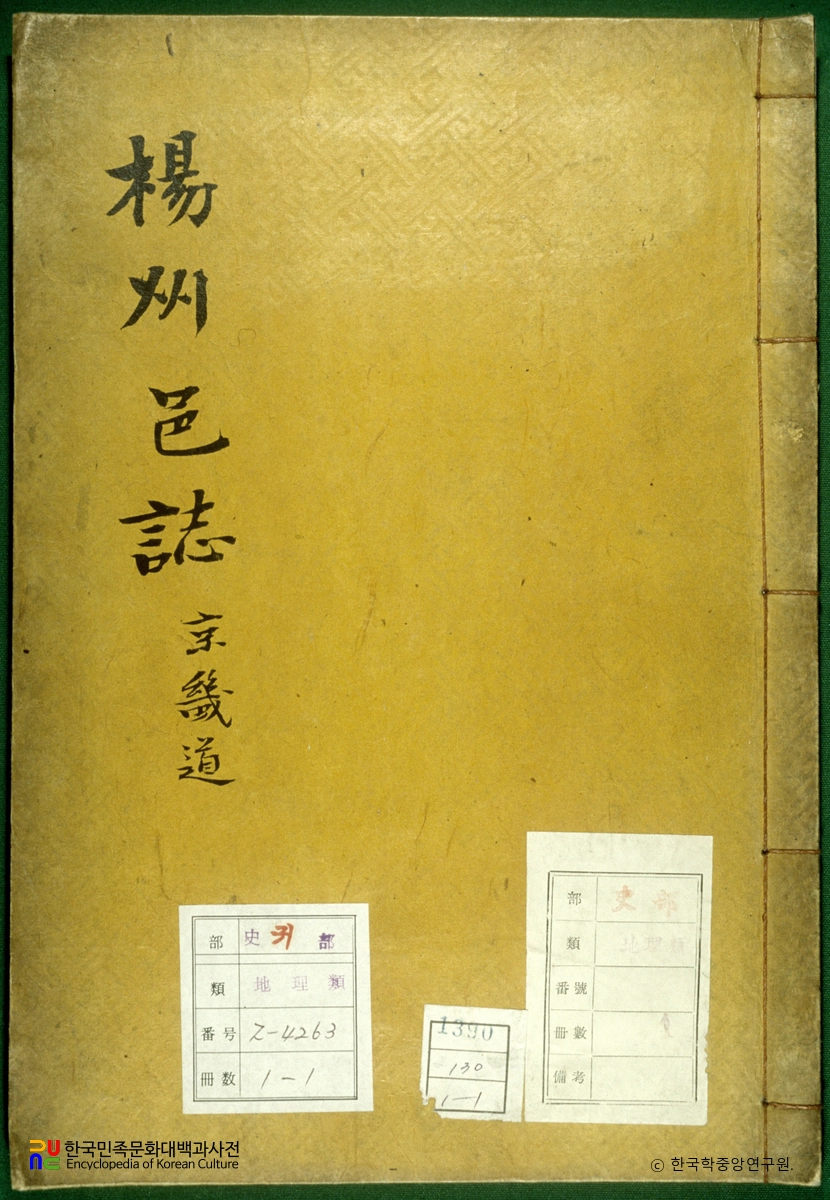 楊州邑誌
京畿道
部 史 귀 部
類 地理類
番号 Z-4263
冊数 1-1
1390
130
1-1
部 史部
類 地理類
番號
冊數
備考
한국민족문화대백과사전
Encyclopedia of Korean Culture
ⓒ 한국학중앙연구원.